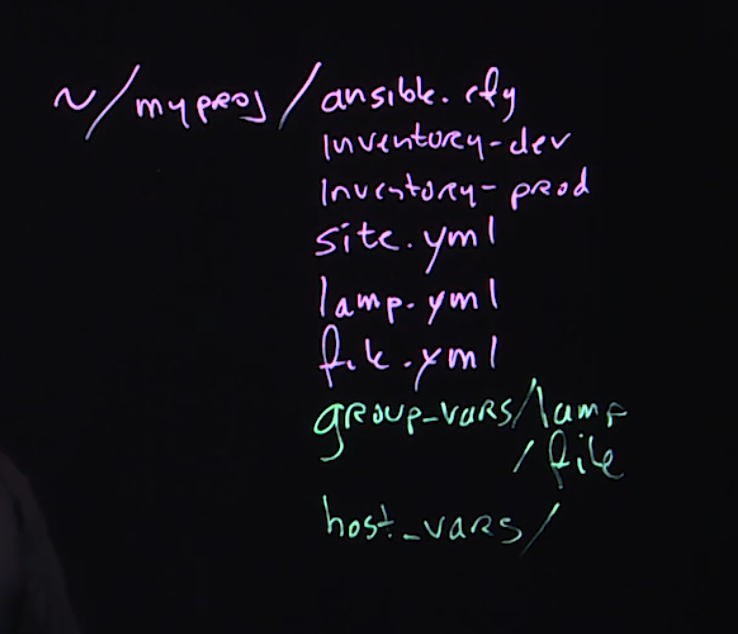 ~/myproj/ansible.cfg
inventory-dev
inventory-prod
site.yml
lamp.yml
file.yml
group_vars/lamp
/file
host_vars/